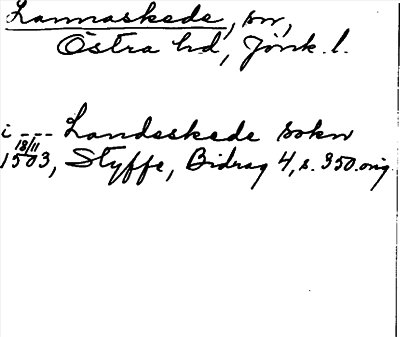 Lannaskede, sn,
Östra hd, Jönk. l.
i --- Landeskede sokn
18/11
1503, Styffe, Bidrag 4, s. 350. orig.